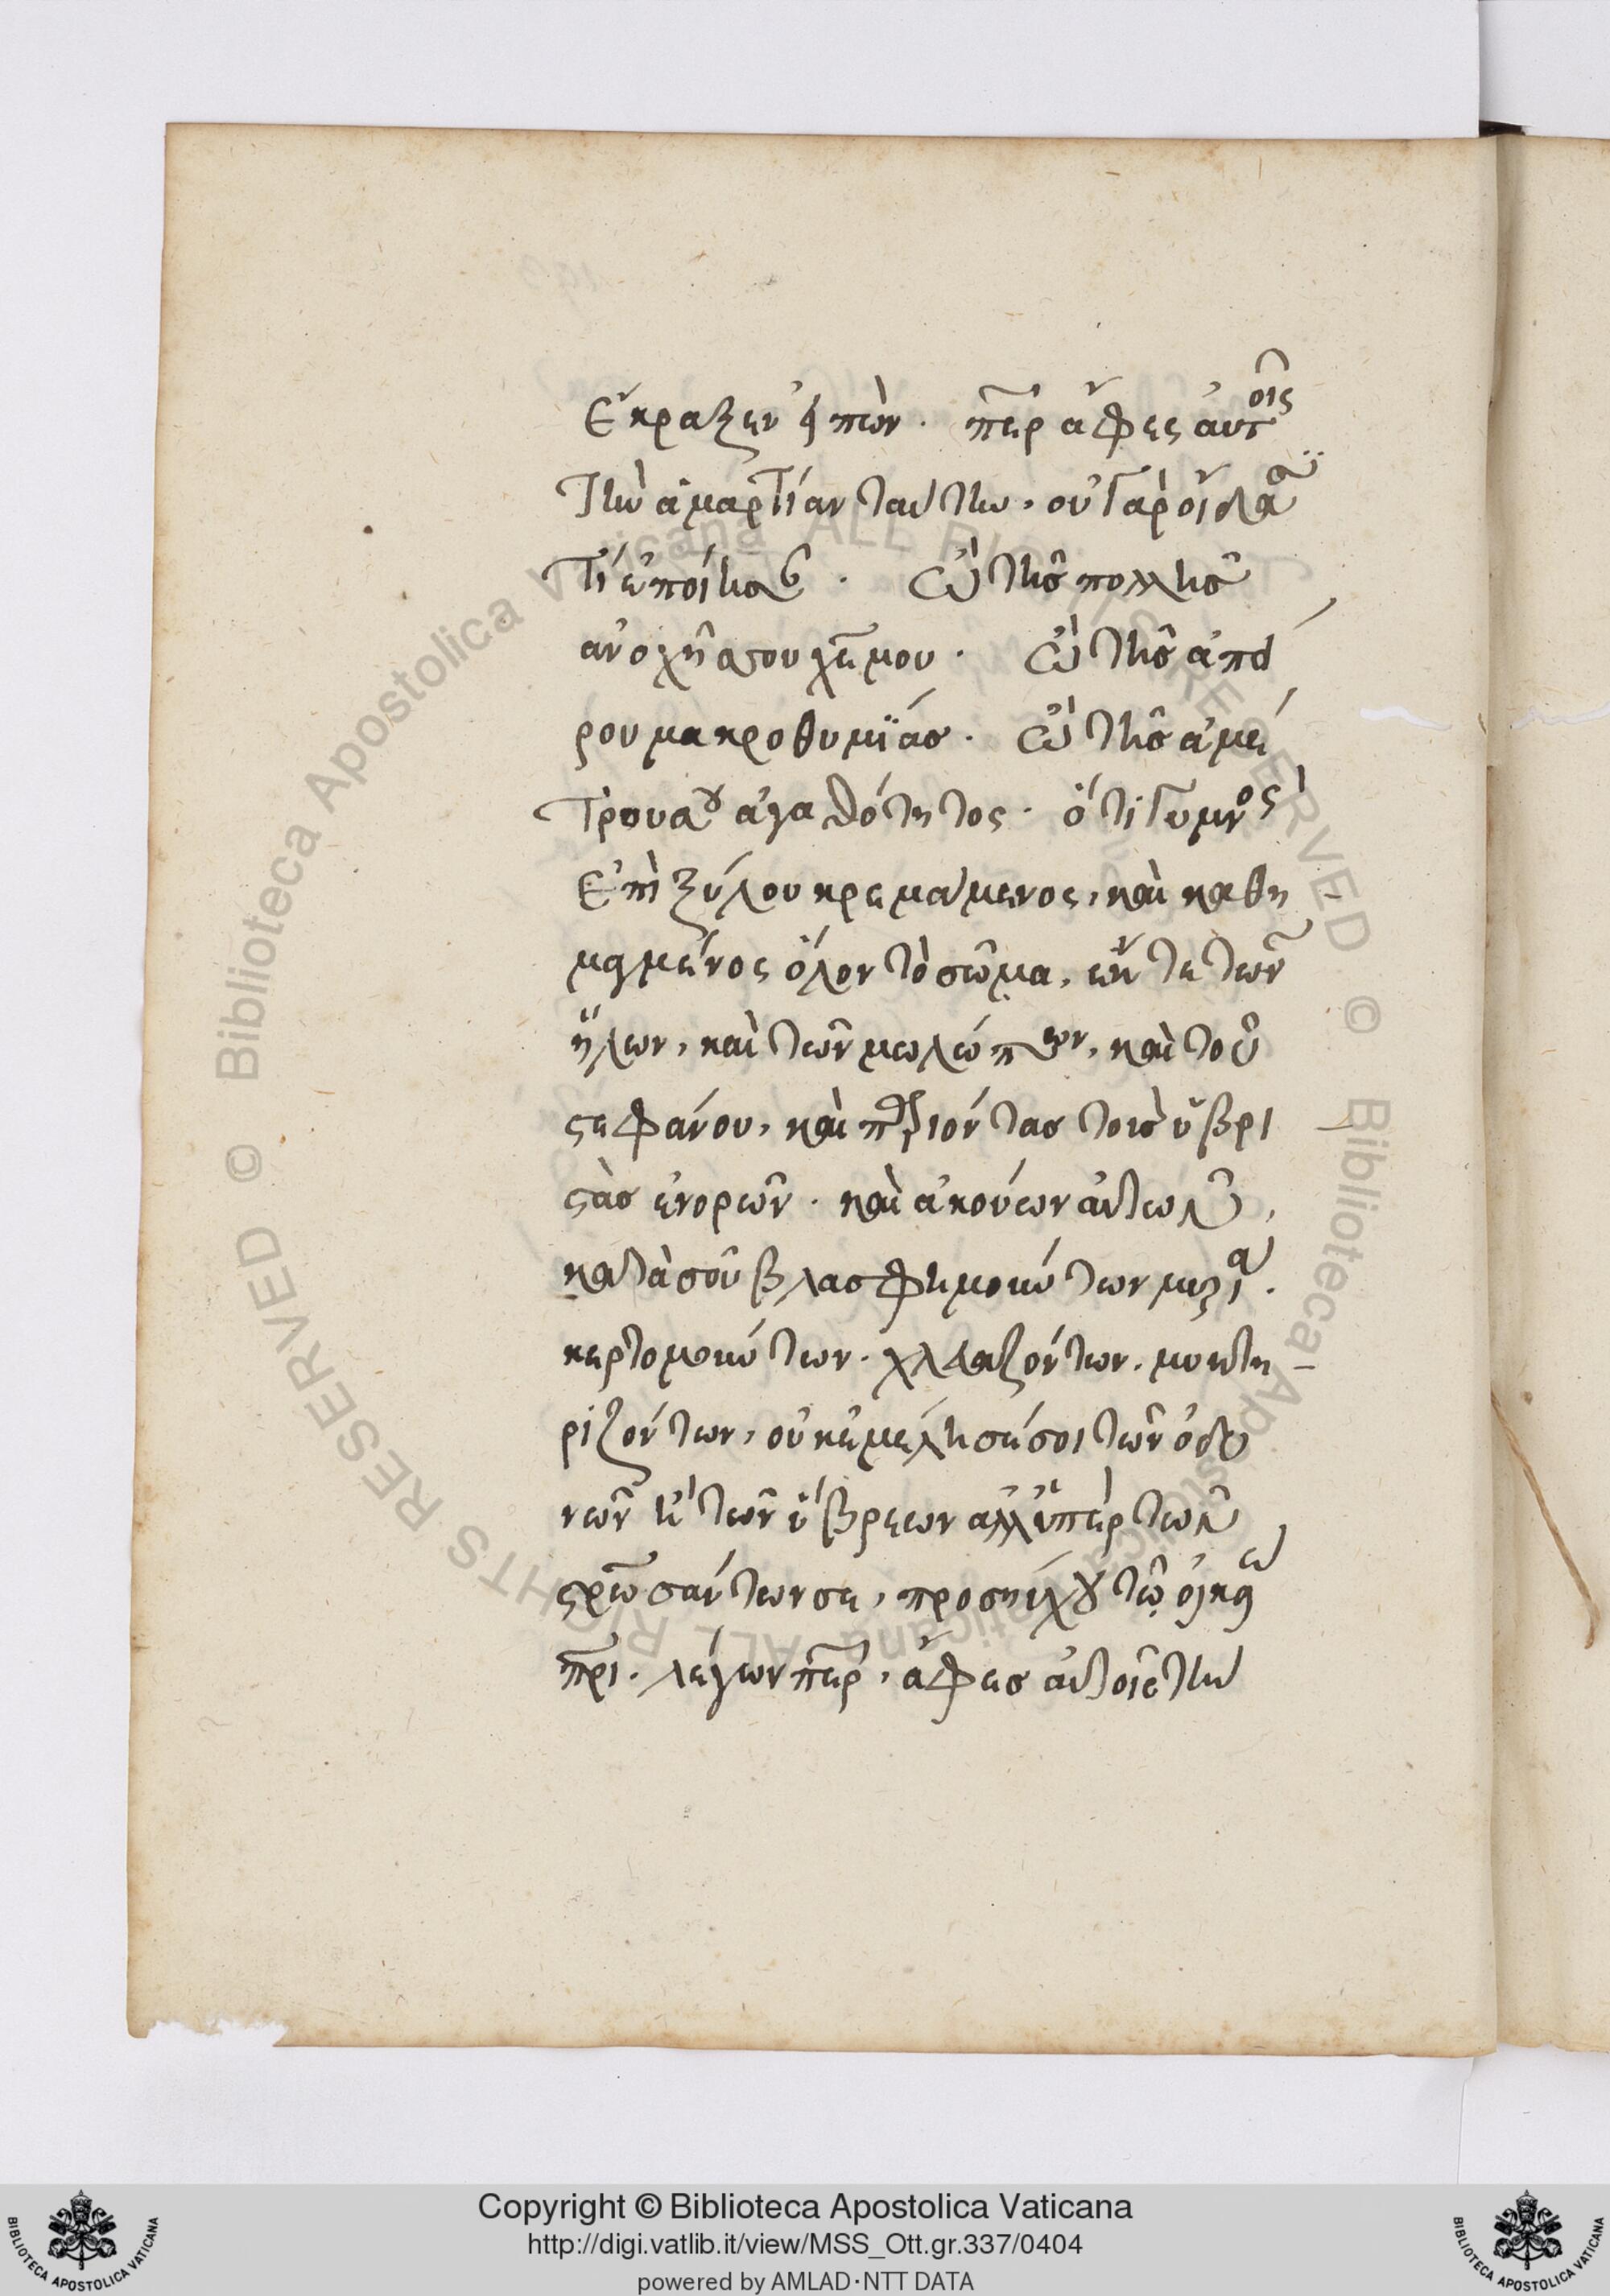 Ἔκραξεν εἰπών. περ ἄφες αὐτοῖς
τὴν ἁμαρτίαν ταύτην, οὐ γὰρ οἴδασι
τί ἐποίησαν. Ὢ τῆς πολλῆς
ἀνοχῆς σου χε μου. Ὢ τῆς ἀπεί
ρου μακροθυμίας. Ὢ τῆς ἀμέ
τρου σου ἀγαθότητος. ὅτι γυμνὸς
Ἐπὶ ξύλου κρεμάμενος, καὶ καθη
μαγμένος ὅλον τὸ σῶμα, ἔκ τε τῶν
ἥλων, καὶ τῶν μωλώπων, καὶ τοῦ
στεφάνου, καὶ περιιόντας τοὺς ὑβρι
στὰς ἐνορῶν. καὶ ἀκούων αὐτῶν,
κατὰ σοῦ βλασφημούντων
κερτομούντων. χλευαζόντων. μυκτη
ριζόντων, οὐκ ἐμέλησέ σοι τῶν ὀδυ
νῶν ἢ τῶν ὕβρεων ἀλλ' ὑπὲρ τῶν
στρωσάντων σε, προσηύχου τῷ οἰκείῳ
πρι. λέγων περ, ἄφες αὐτοῖς τὴν
Copyright © Biblioteca Apostolica Vaticana
http://digi.vatlib.it/view/MSS_Ott.gr.337/0404
powered by AMLAD·NTT DATA